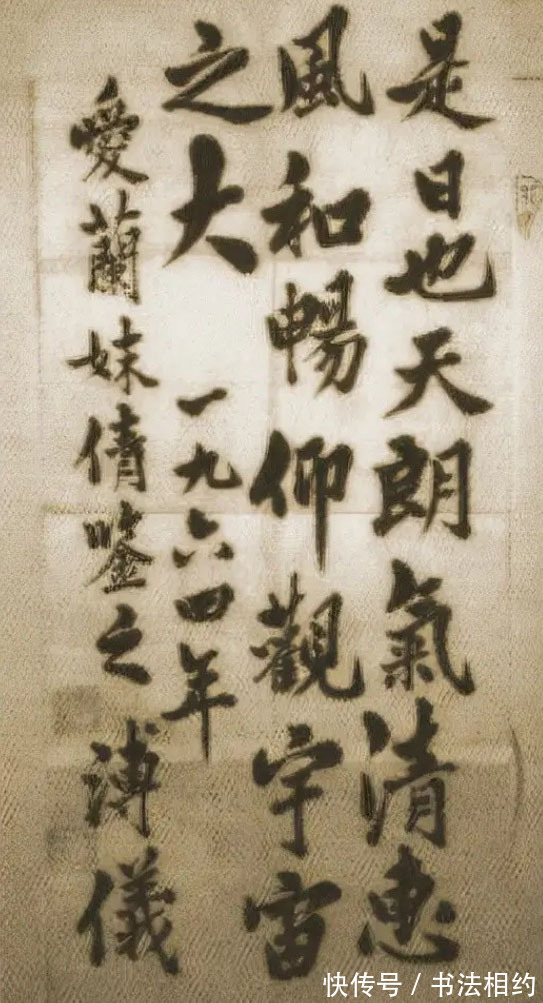 是日也天朗氣清惠
風和暢仰觀宇宙
之大 一九六四年
愛蘭妹倩鑒之 溥儀
快传号/书法相约